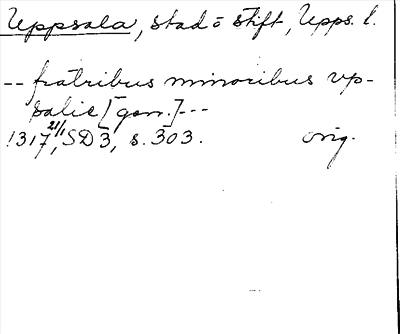 Uppsala, stad o stift, Upps. l.
-- fratribus minoribus vp-
salie [gen.] ---
1317 21/1, SD 3, s. 303. orig.